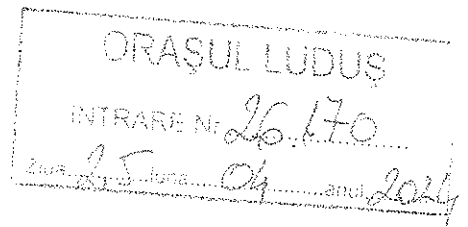 ORAȘUL LUDUȘ
INTRARE Nr 26.170
Ziua 25 luna 04 anul 2024